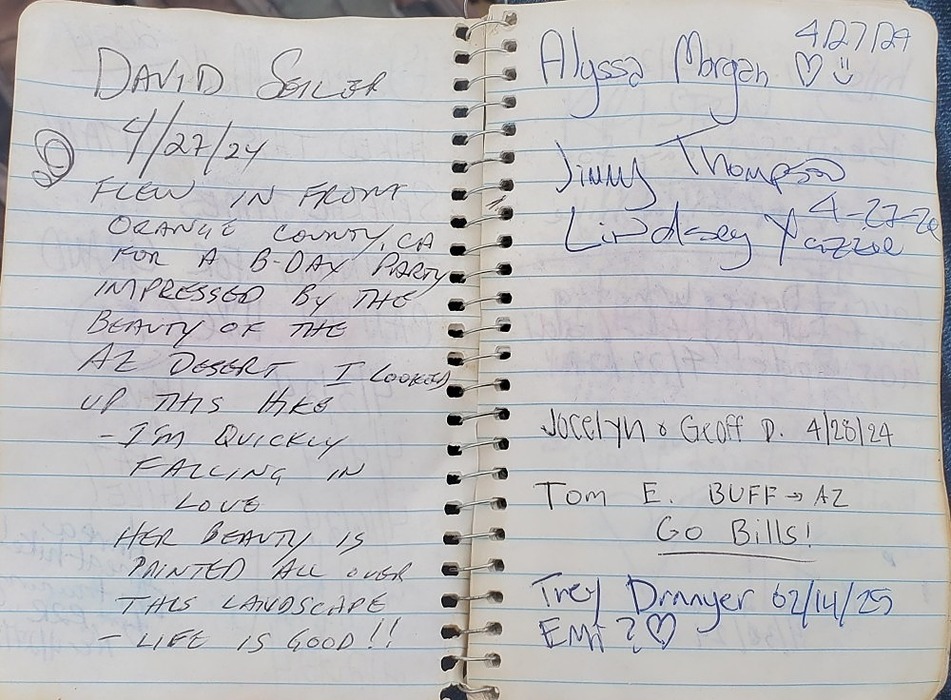 DAVID SEILER
4/27/24
FLEW IN FROM
ORANGE COUNTY, CA
FOR A B-DAY PARTY
IMPRESSED BY THE
BEAUTY OF THE
AZ DESERT I LOOKED
UP THIS HIKE
-I'M QUICKLY
FALLING IN
LOVE
HER BEAUTY IS
PAINTED ALL OVER
THIS LANDSCAPE
- LIFE IS GOOD!!
4/27/24
Alyssa Morgan ♡ :)
Jimmy Thompson
4-27-24
Lindsey Yazzie
Jocelyn & Geoff D. 4/28/24
TOM E. BUFF → AZ
GO BILLS!
Trey 02/14/25
♡